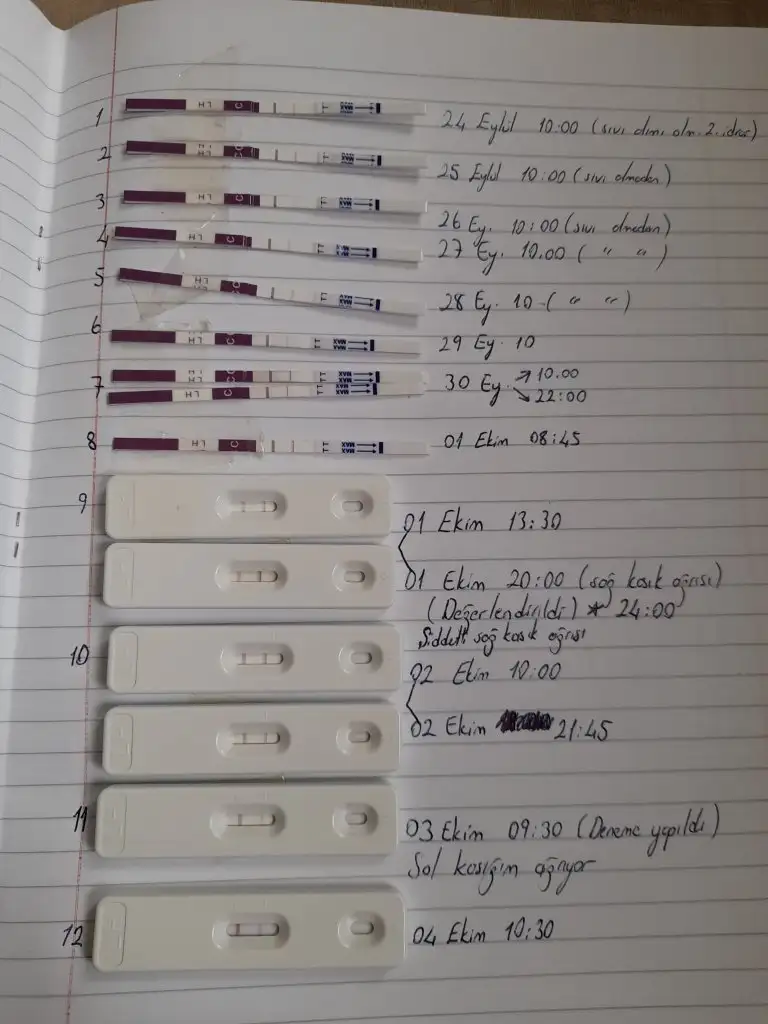 1 LH C T MAX 24 Eylül 10:00 (sıvı alımı olm. 2. idrar)
2 LH C T MAX 25 Eylül 10:00 (sıvı almadan)
3 LH C T MAX 26 Ey. 10:00 (sıvı almadan)
4 LH C T MAX 27 Ey. 10.00 ( " " )
5 LH C T MAX 28 Ey. 10 ( " " )
6 LH C T MAX 29 Ey. 10
7 LH C T MAX 30 Ey. → 10.00
LH C T MAX → 22:00
8 LH C T MAX 01 Ekim 08:45
9 01 Ekim 13:30
01 Ekim 20:00 (sağ kasık ağrısı)
(Değerlendirildi) * 24:00
Şiddetli sağ kasık ağrısı
10 02 Ekim 10:00
02 Ekim 21:45
11 03 Ekim 09:30 (Deneme yapıldı)
Sol kasığım ağrıyor
12 04 Ekim 10:30